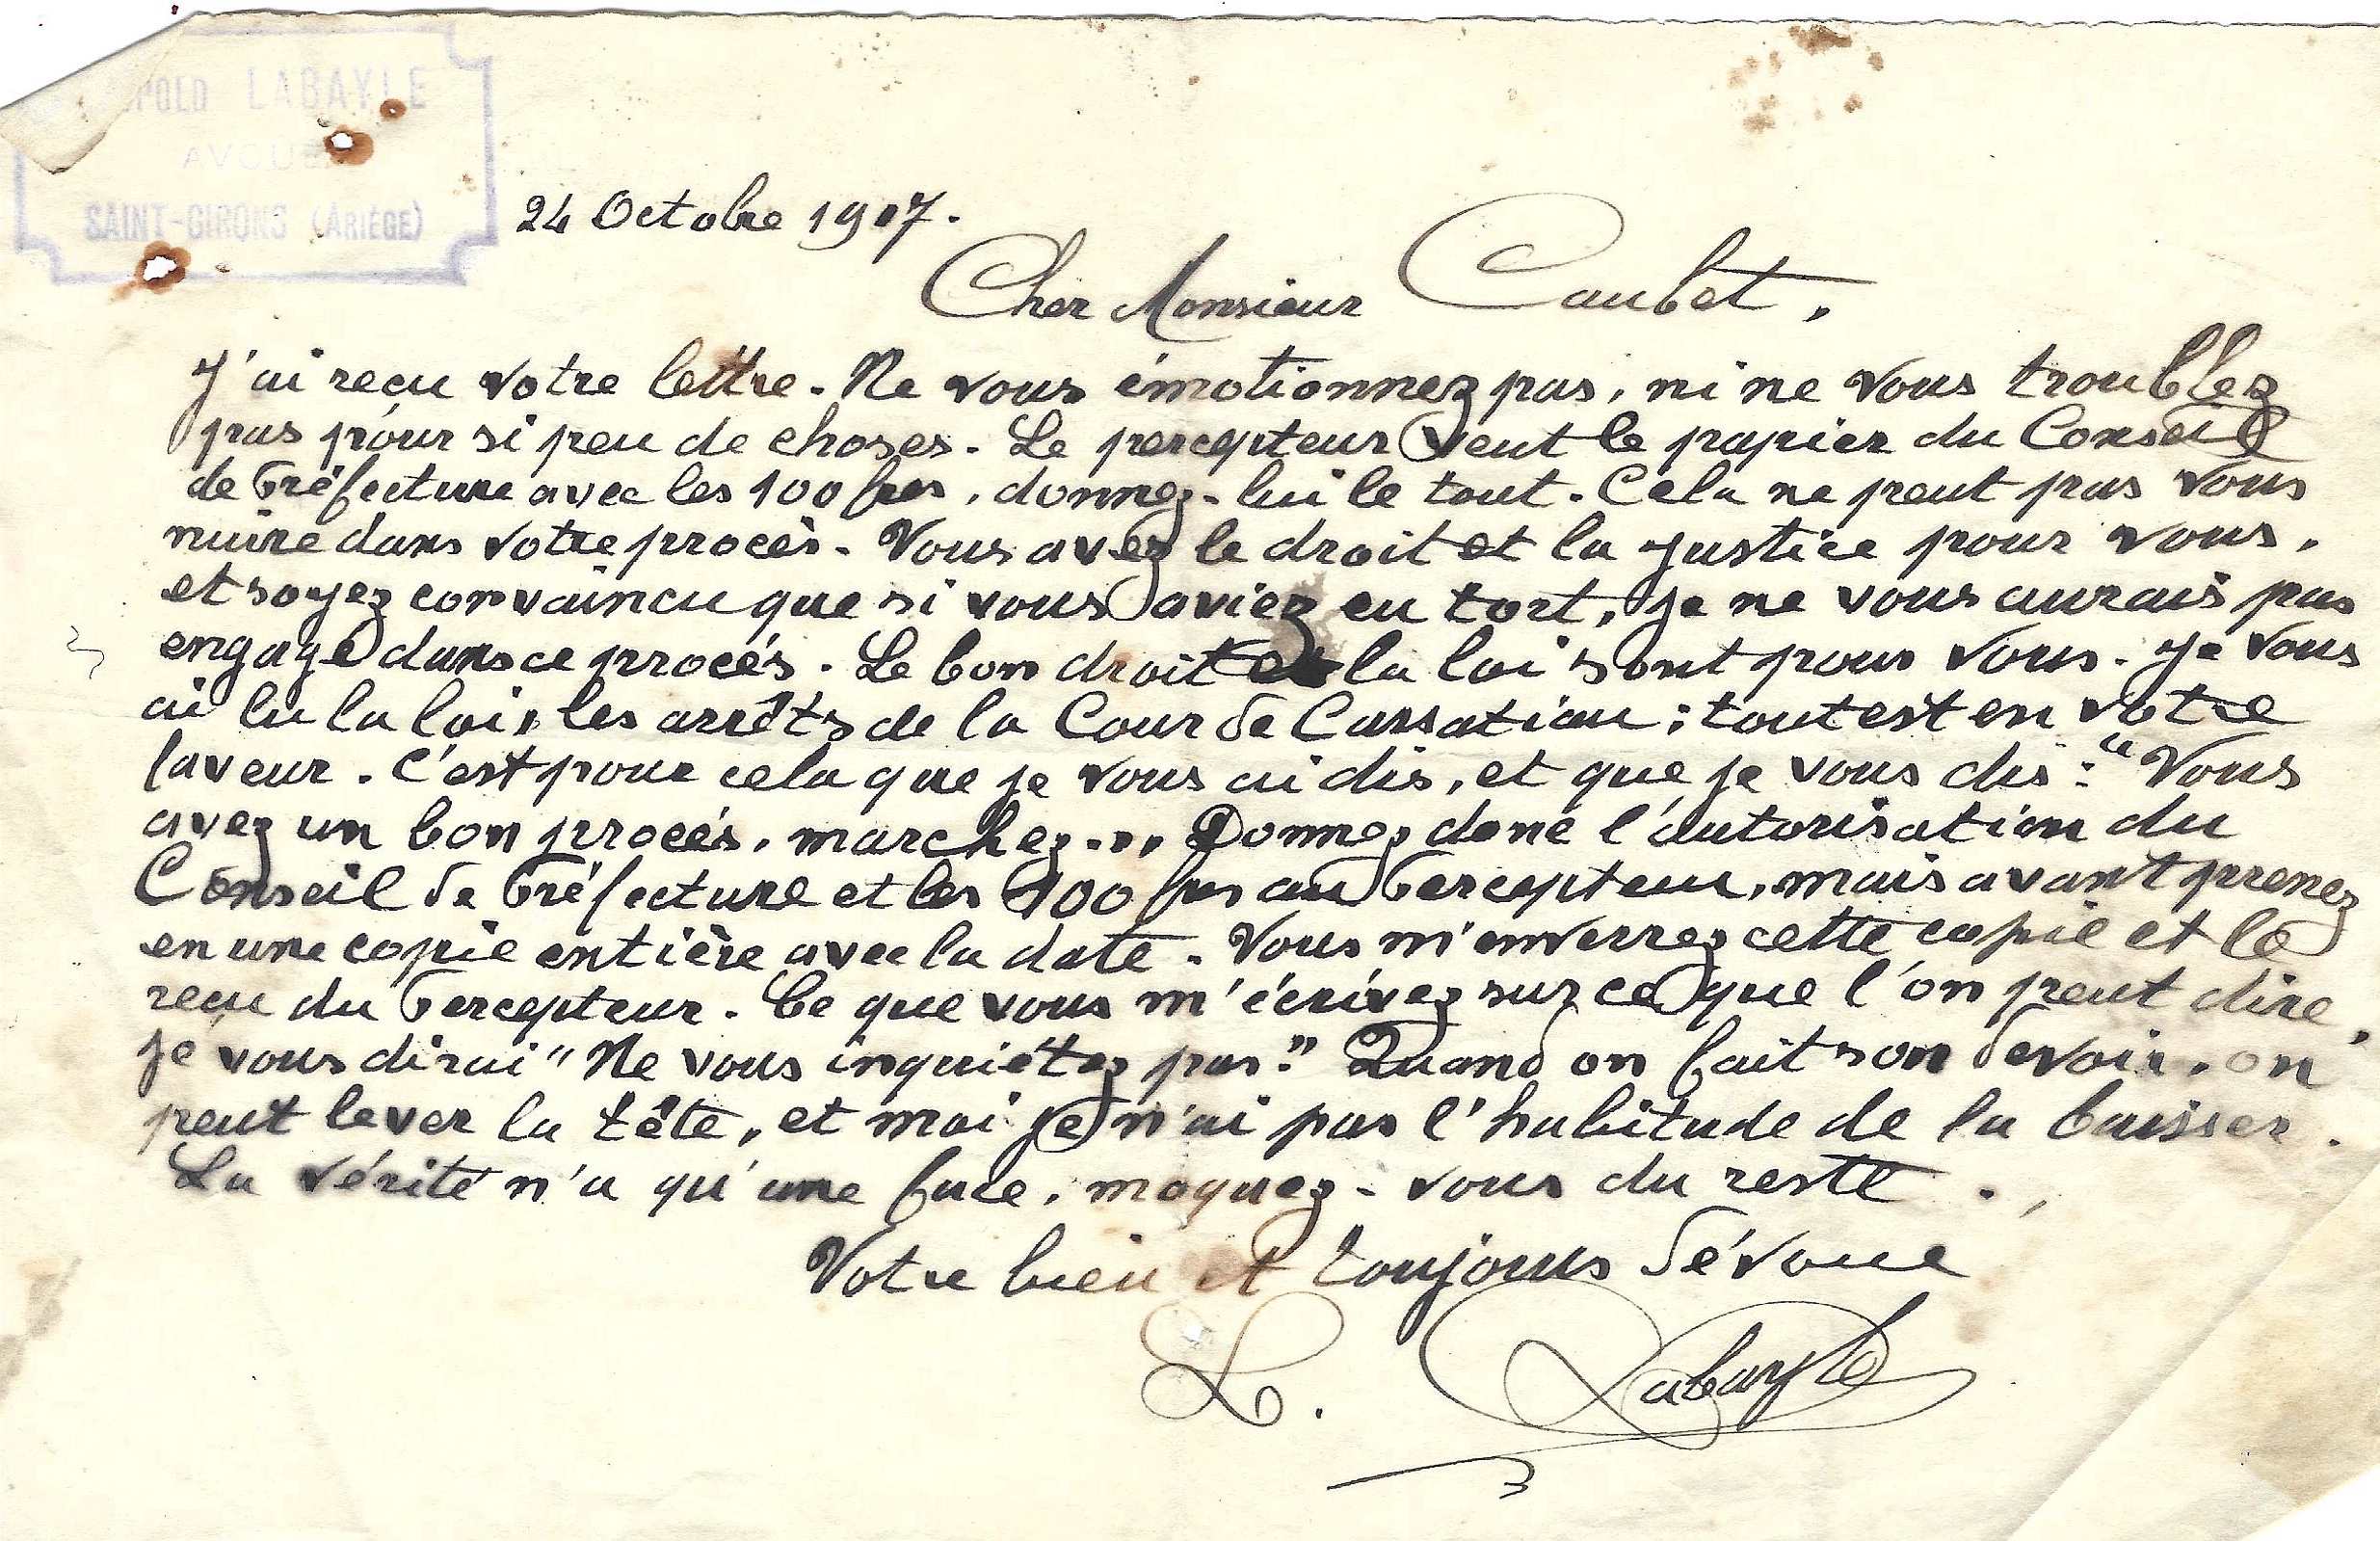 LABAYLE
AVOUÉ
SAINT-GIRONS (ARIÈGE)
24 Octobre 1907.
Cher Monsieur Caubet,
J'ai reçu votre lettre. Ne vous émotionnez pas, ni ne vous troublez
pas pour si peu de choses. Le percepteur veut le papier du Conseil
de Préfecture avec les 100 frs, donnez-lui le tout. Cela ne peut pas vous
nuire dans votre procès. Vous avez le droit et la justice pour vous,
et soyez convaincu que si vous aviez eu tort, je ne vous aurais pas
engagé dans ce procés. Le bon droit et la loi sont pour vous. Je vous
ai lu la loi, les arrêts de la Cour de Cassation : tout est en votre
faveur. C'est pour cela que je vous ai dis, et que je vous dis : "Vous
avez un bon procés, marchez.„ Donnez donc l'autorisation du
Conseil de Préfecture et les 100 frs au Percepteur, mais avant prenez
en une copie entière avec la date. Vous m'enverrez cette copie et le
reçu du Percepteur. Ce que vous m'écrivez sur ce que l'on peut dire,
je vous dirai "Ne vous inquiétez pas." Quand on fait son devoir, on
peut lever la tête, et moi je n'ai pas l'habitude de la baisser.
La vérité n'a qu'une face, moquez-vous du reste.
Votre bien et toujours dévoué
L. Labayle